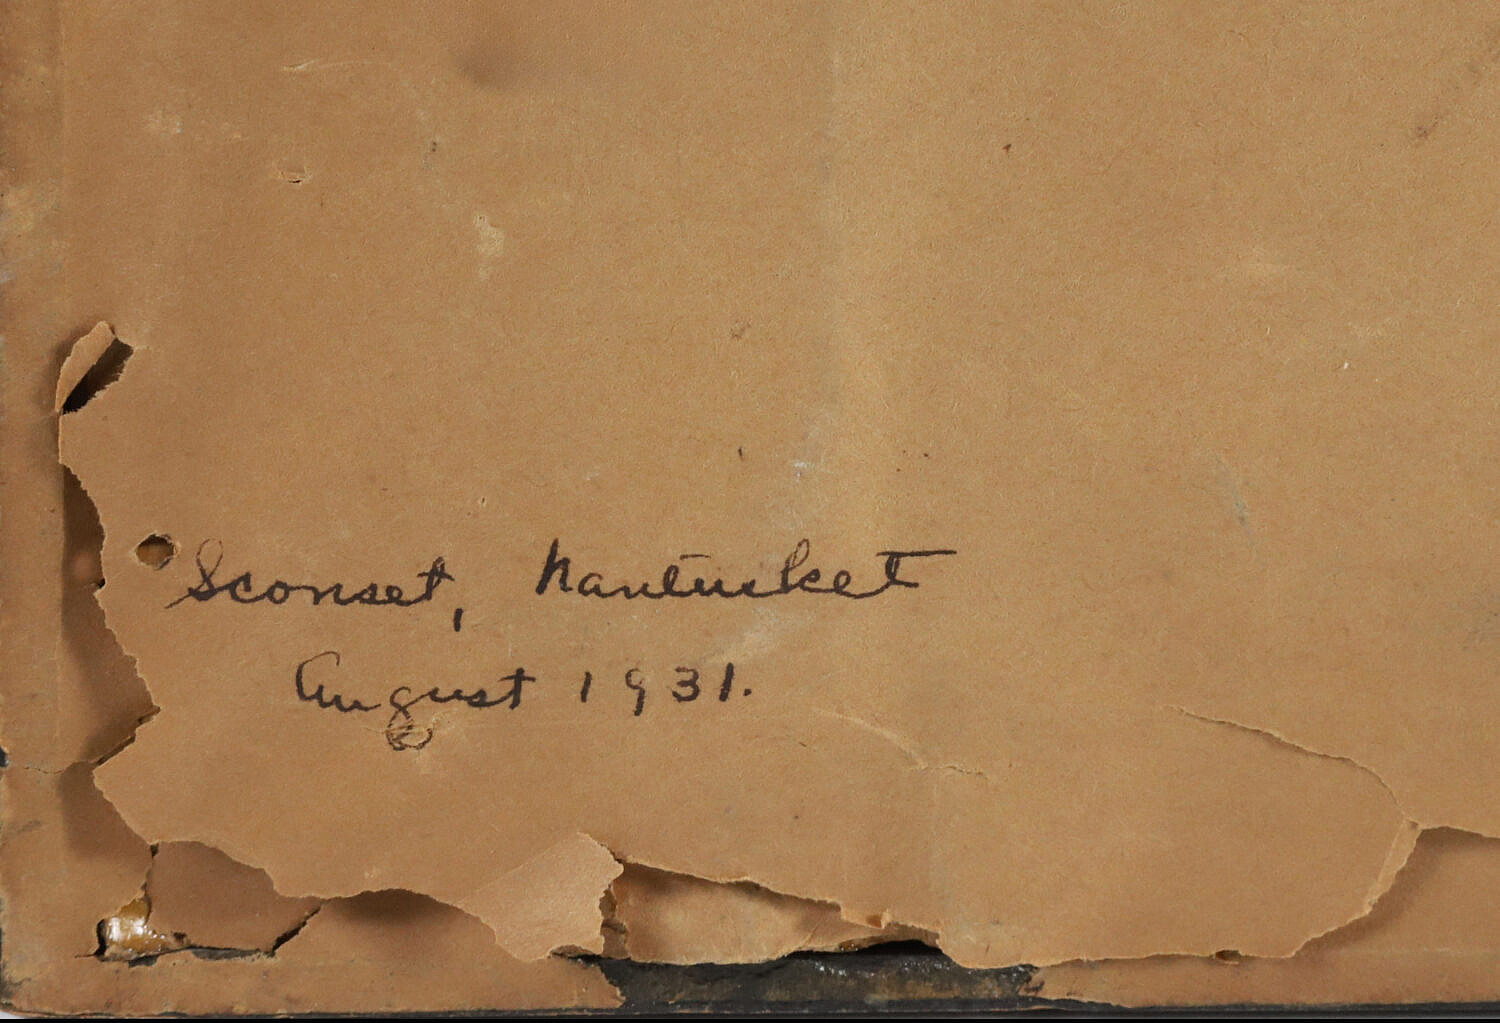 Sconset, Nantucket
August 1931.